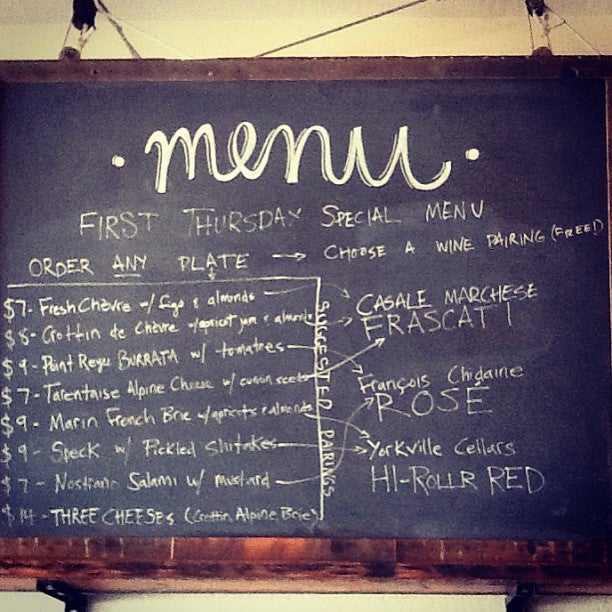 menu
FIRST THURSDAY SPECIAL MENU
ORDER ANY PLATE → CHOOSE A WINE PAIRING (FREE!)
$7- Fresh Chèvre w/ figs & almonds
$8- Crottin de Chèvre w/ apricot jam & almonds
$9- Point Reyes BURRATA w/ tomatoes
$7- Tarentaise Alpine Cheese w/ cumin seeds
$9- Marin French Brie w/ apricots & almonds
$9- Speck w/ Pickled Shitakes
$7- Nostrano Salami w/ mustard
$14- THREE CHEESES (Crottin, Alpine, Brie)
SUGGESTED PAIRINGS
CASALE MARCHESE
FRASCATI
François Chidaine
ROSÉ
Yorkville Cellars
HI-ROLLR RED